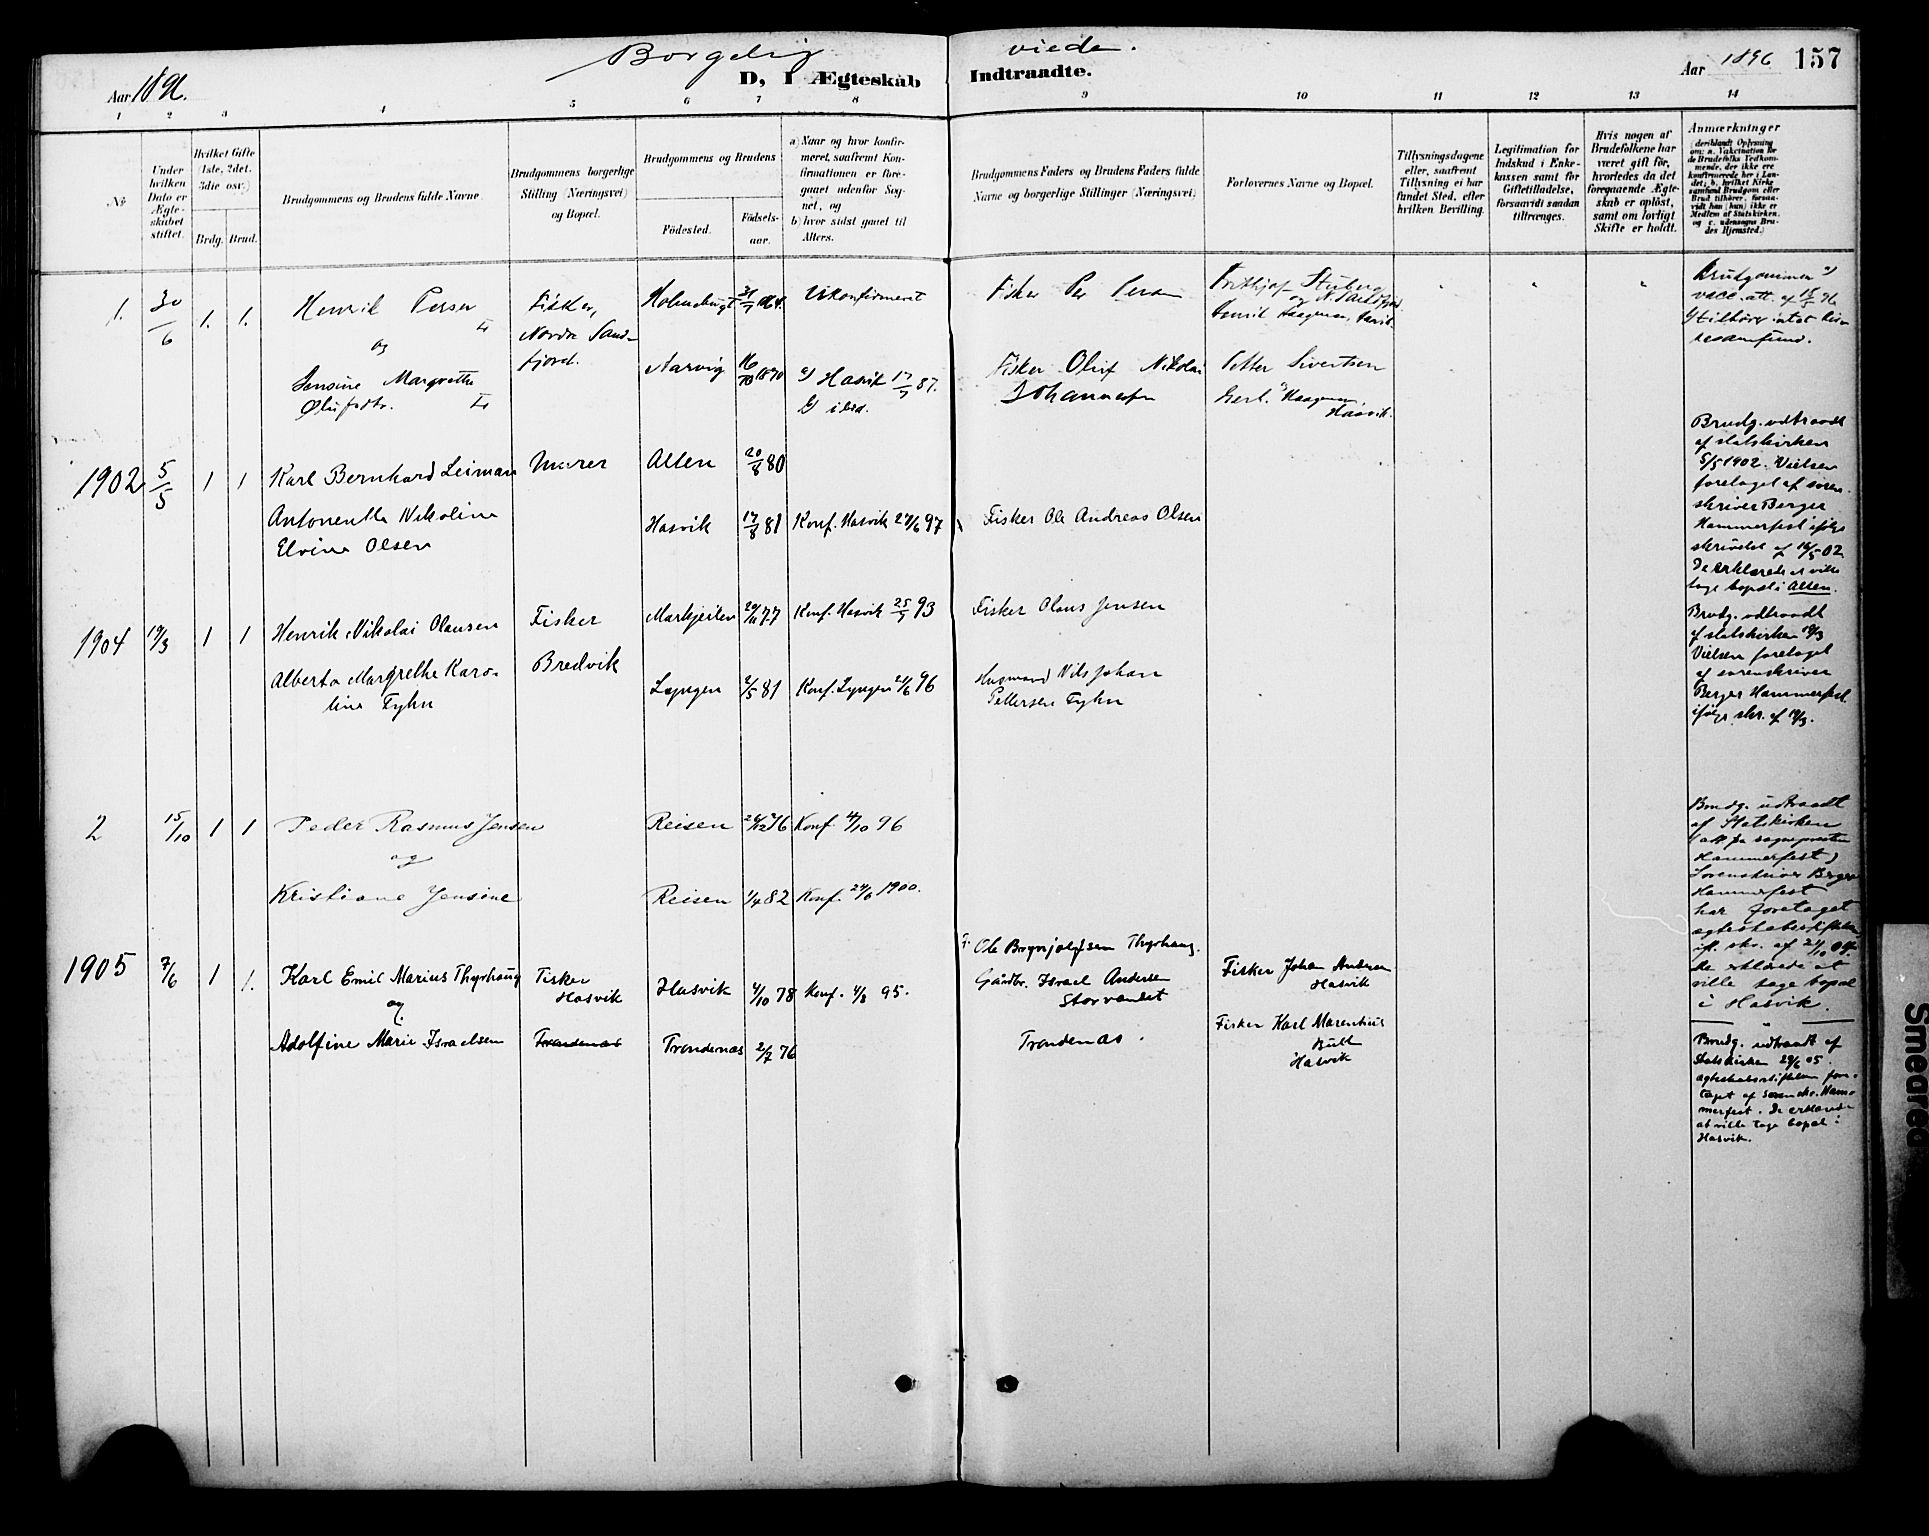 Borgelig viede.
Aar 1896.
D, I Ægteskab Indtraadte.
Aar 1896
157
1 2 3 4 5 6 7 8 9 10 11 12 13 14
No
Under hvilken Dato er Ægteskabet stiftet.
Hvilket Gifte (1ste, 2det, 3die osv.)
Brdg. Brud.
Brudgommens og Brudens fulde Navne
Brudgommens borgerlige Stilling (Næringsvei) og Bopæl.
Brudgommens og Brudens
Födested.
Födselsaar.
a) Naar og hvor konfirmeret, saafremt Konfirmationen er foregaaet udenfor Sognet, og
b) hvor sidst gaaet til Alters.
Brudgommens Faders og Brudens Faders fulde Navne og borgerlige Stillinger (Næringsvei)
Forlovernes Navne og Bopæl.
Tillysningsdagene eller, saafremt Tillysning ei har fundet Sted, efter hvilken Bevilling.
Legitimation for Indskud i Enkekassen samt for Giftetilladelse, forsaavidt saadan tiltrænges.
Hvis nogen af Brudefolkene har været gift för, hvorledes da det foregaaende Ægteskab er oplöst, samt om lovligt Skifte er holdt.
Anmærkninger (deriblandt Oplysning om: a. Vakcination for de Brudefolks Vedkommende, der ikke ere konfirmerede her i Landet; b. hvilket Kirkesamfund Brudgom eller Brud tilhörer, forsaavidt han (hun) ikke er Medlem af Statskirken, og c. udensogns Brudes Hjemsted.)
1. 30/6 1. 1.
Henrik Persen
og
Jensine Margrethe
Olufsdtr.
Fisker,
Nordre Sandfjord.
Holmebugt 1864.
Ukonfirmeret
Fisker Per Persen
Aarvig 16/10 1870
a) Hasvik 17/7 87.
Fisker Oluf Nikolai
Johannesen
Petter Sivertsen
Hasvik.
Brudgommen a)
vacc. att. af 15/5 96
1902 5/5 1 1
Karl Bernhard Leiman
Murer
Alten 20/8 80
Antonentha Nikoline
Elvine Olsen
Hasvik 17/8 81
Konf. Hasvik 27/6 97
Fisker Ole Andreas Olsen
Brudg. udtraadt
af statskirken
5/5 1902. Vielsen
foretaget af sorenskriver
Berger
Hammerfest ifølge
skrivelse af 16/5 02
De erklærede at ville
tage bopæl i Alten.
1904 19/3 1 1
Henrik Nikolai Olausen
Fisker
Bredvik
Markjeilen 20/11 77
Konf. Hasvik 25/7 93
Fisker Olaus Jensen
Alberta Margrethe Karoline
Fyhn
Lyngen 2/5 81
Konf. Lyngen 21/6 96
Husmand Nils Johan
Pettersen Fyhn
Brudg. udtraadt
af statskirken 19/3
Vielsen foretaget
af sorenskriver
Berger Hammerfest
ifølge skr. af 19/3.
2 15/10 1 1
Peder Rasmus Jensen
og
Kristiane Jensine
Reisen 26/12 76
Konf. 4/10 96
Reisen 1/4 82
Konf. 24/6 1900.
Brudg. udtraadt
af Statskirken
(att fra sognepresten
Hammerfest)
Sorenskriver Berger
Hammerfest
har foretaget
ægteskabsstiftelsen
ifl. skr. af 21/10 04.
De erklærede at
ville tage bopæl
i Hasvik.
1905 7/6 1 1.
Karl Emil Marius Thyrhaug
og
Adolfine Marie Israelsen
Fisker
Hasvik
Trondenæs
Hasvik 4/10 78
Konf. 4/8 95.
Trondenæs 2/7 76
F. Ole Brynjolfsen Thyrhaug.
Gårdbr. Israel Andersen
Storvandet
Trondenæs.
Fisker Johan Andersen
Hasvik
Fisker Karl Marentius
Bull
Hasvik
Brudg. udtraadt af
Statskirken 29/6 05
ægteskabsstiftelsen foretaget
af sorenskr. Hammerfest.
De erklærede
at ville tage bopæl i
Hasvik.
Smeared